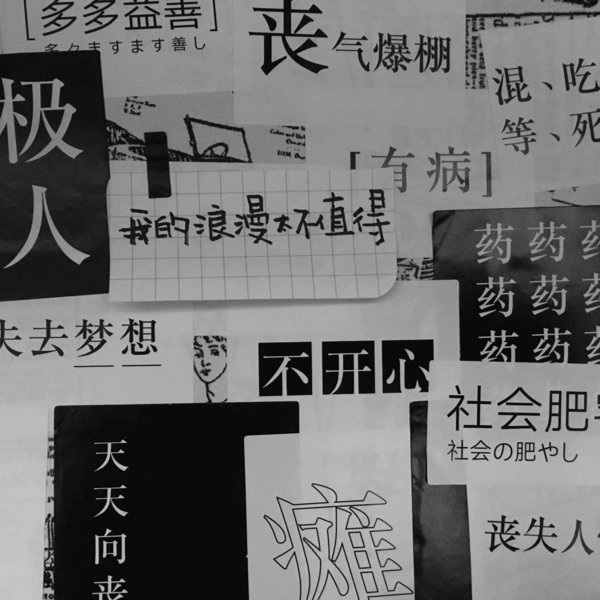 [多多益善]
多々ますます善し
丧
气爆棚
混、吃
等、死
极
人
[有病]
我的浪漫太不值得
药药药
药药药
药药药
失去梦想
不开心
社会肥宅
社会の肥やし
天天向丧
瘫
丧失人